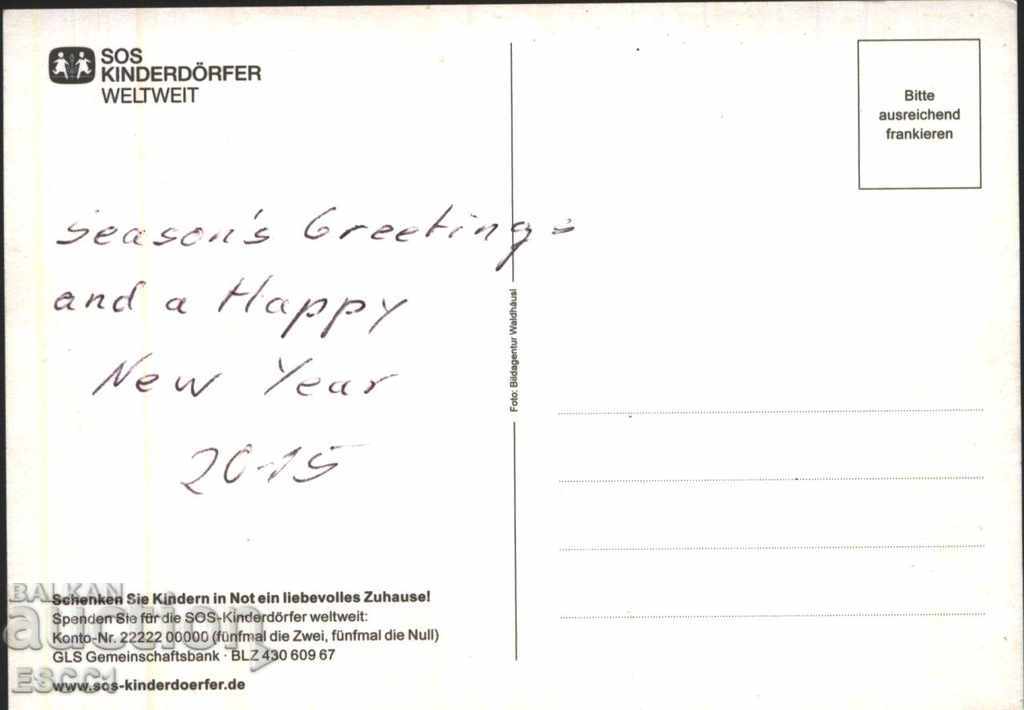 SOS
KINDERDÖRFER
WELTWEIT
Bitte
ausreichend
frankieren
Season's Greetings
and a Happy
New Year
2015
Foto: Bildagentur Waldhäusl
Schenken Sie Kindern in Not ein liebevolles Zuhause!
Spenden Sie für die SOS-Kinderdörfer weltweit:
Konto-Nr. 22222 00000 (fünfmal die Zwei, fünfmal die Null)
GLS Gemeinschaftsbank · BLZ 430 609 67
www.sos-kinderdoerfer.de
BALKAN
auction
ESCC1